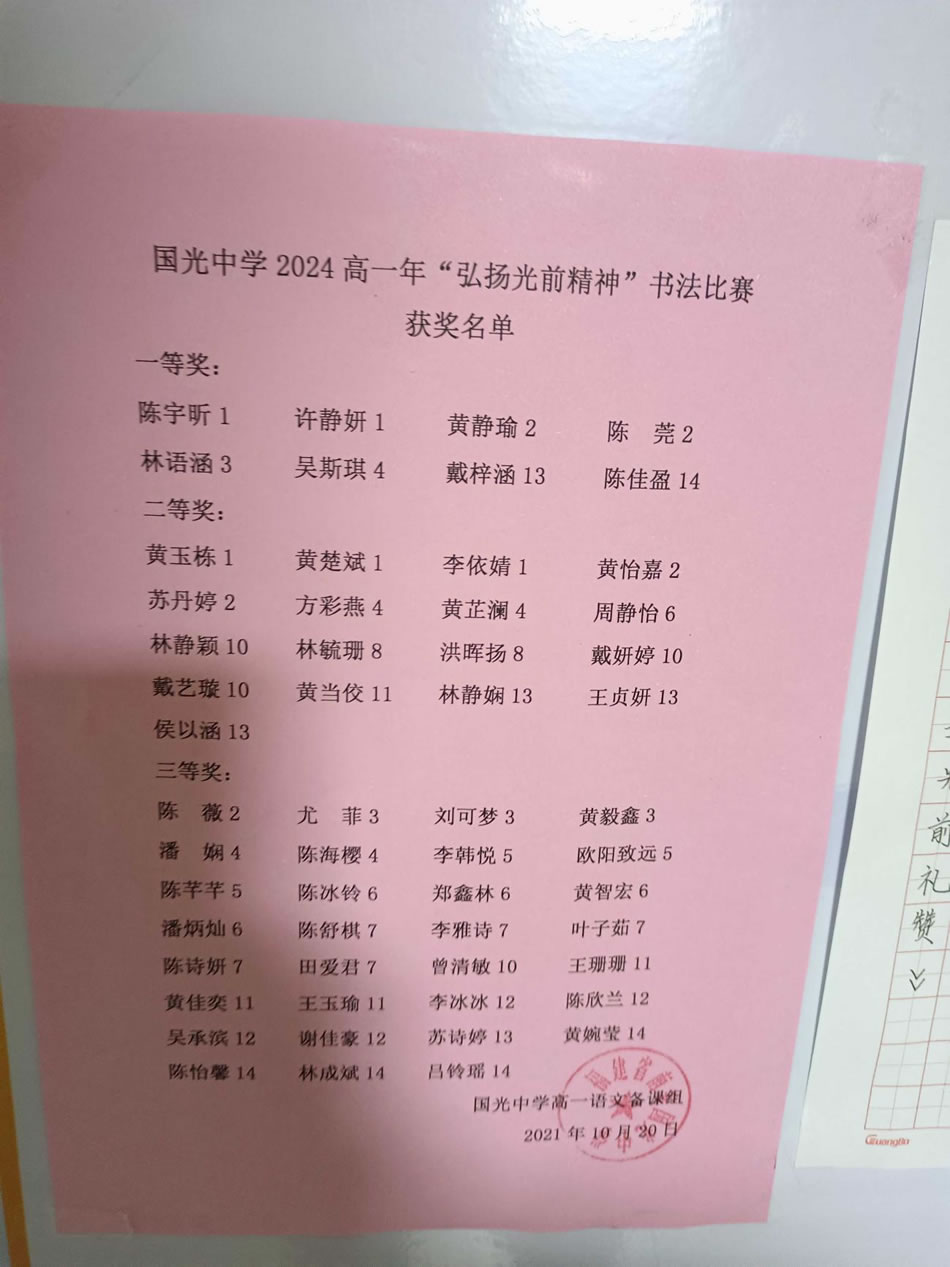 国光中学 2024 高一年“弘扬光前精神”书法比赛
获奖名单
一等奖：
陈宇昕 1 许静妍 1 黄静瑜 2 陈 莞 2
林语涵 3 吴斯琪 4 戴梓涵 13 陈佳盈 14
二等奖：
黄玉栋 1 黄楚斌 1 李依婧 1 黄怡嘉 2
苏丹婷 2 方彩燕 4 黄芷澜 4 周静怡 6
林静颖 10 林毓珊 8 洪晖扬 8 戴妍婷 10
戴艺璇 10 黄当佼 11 林静娴 13 王贞妍 13
侯以涵 13
三等奖：
陈 薇 2 尤 菲 3 刘可梦 3 黄毅鑫 3
潘 娴 4 陈海樱 4 李韩悦 5 欧阳致远 5
陈芊芊 5 陈冰铃 6 郑鑫林 6 黄智宏 6
潘炳灿 6 陈舒棋 7 李雅诗 7 叶子茹 7
陈诗妍 7 田爱君 7 曾清敏 10 王珊珊 11
黄佳奕 11 王玉瑜 11 李冰冰 12 陈欣兰 12
吴承滨 12 谢佳豪 12 苏诗婷 13 黄婉莹 14
陈怡馨 14 林成斌 14 吕铃瑶 14
国光中学高一语文备课组
2021 年 10 月 20 日
前
礼
赞
GuangBo